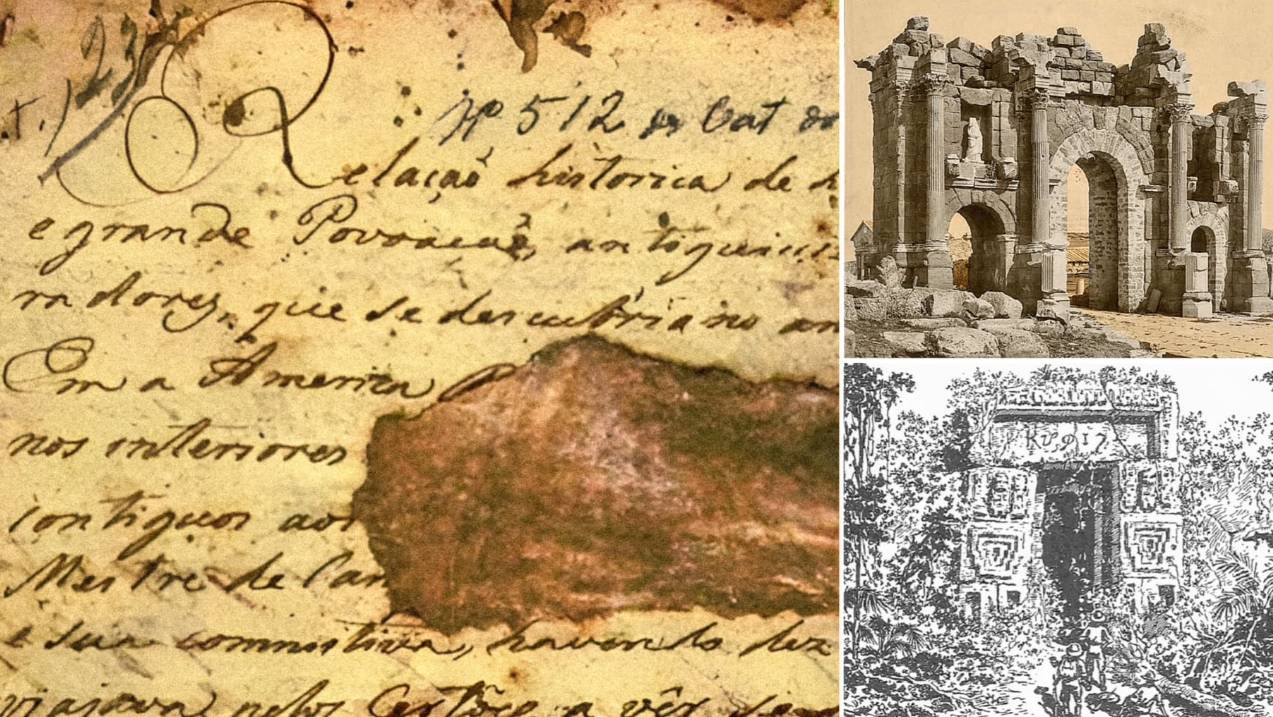 Nº 512 do Cat do
Relaçaõ historica de h
e grande Povoaçaõ, antiquiss
radores, que se descubria no an
Em a America
nos interiores
contiguos aos
Mestre de Can
e sua commitiva, havendo dez
viajava pelos Certões, a vêr se